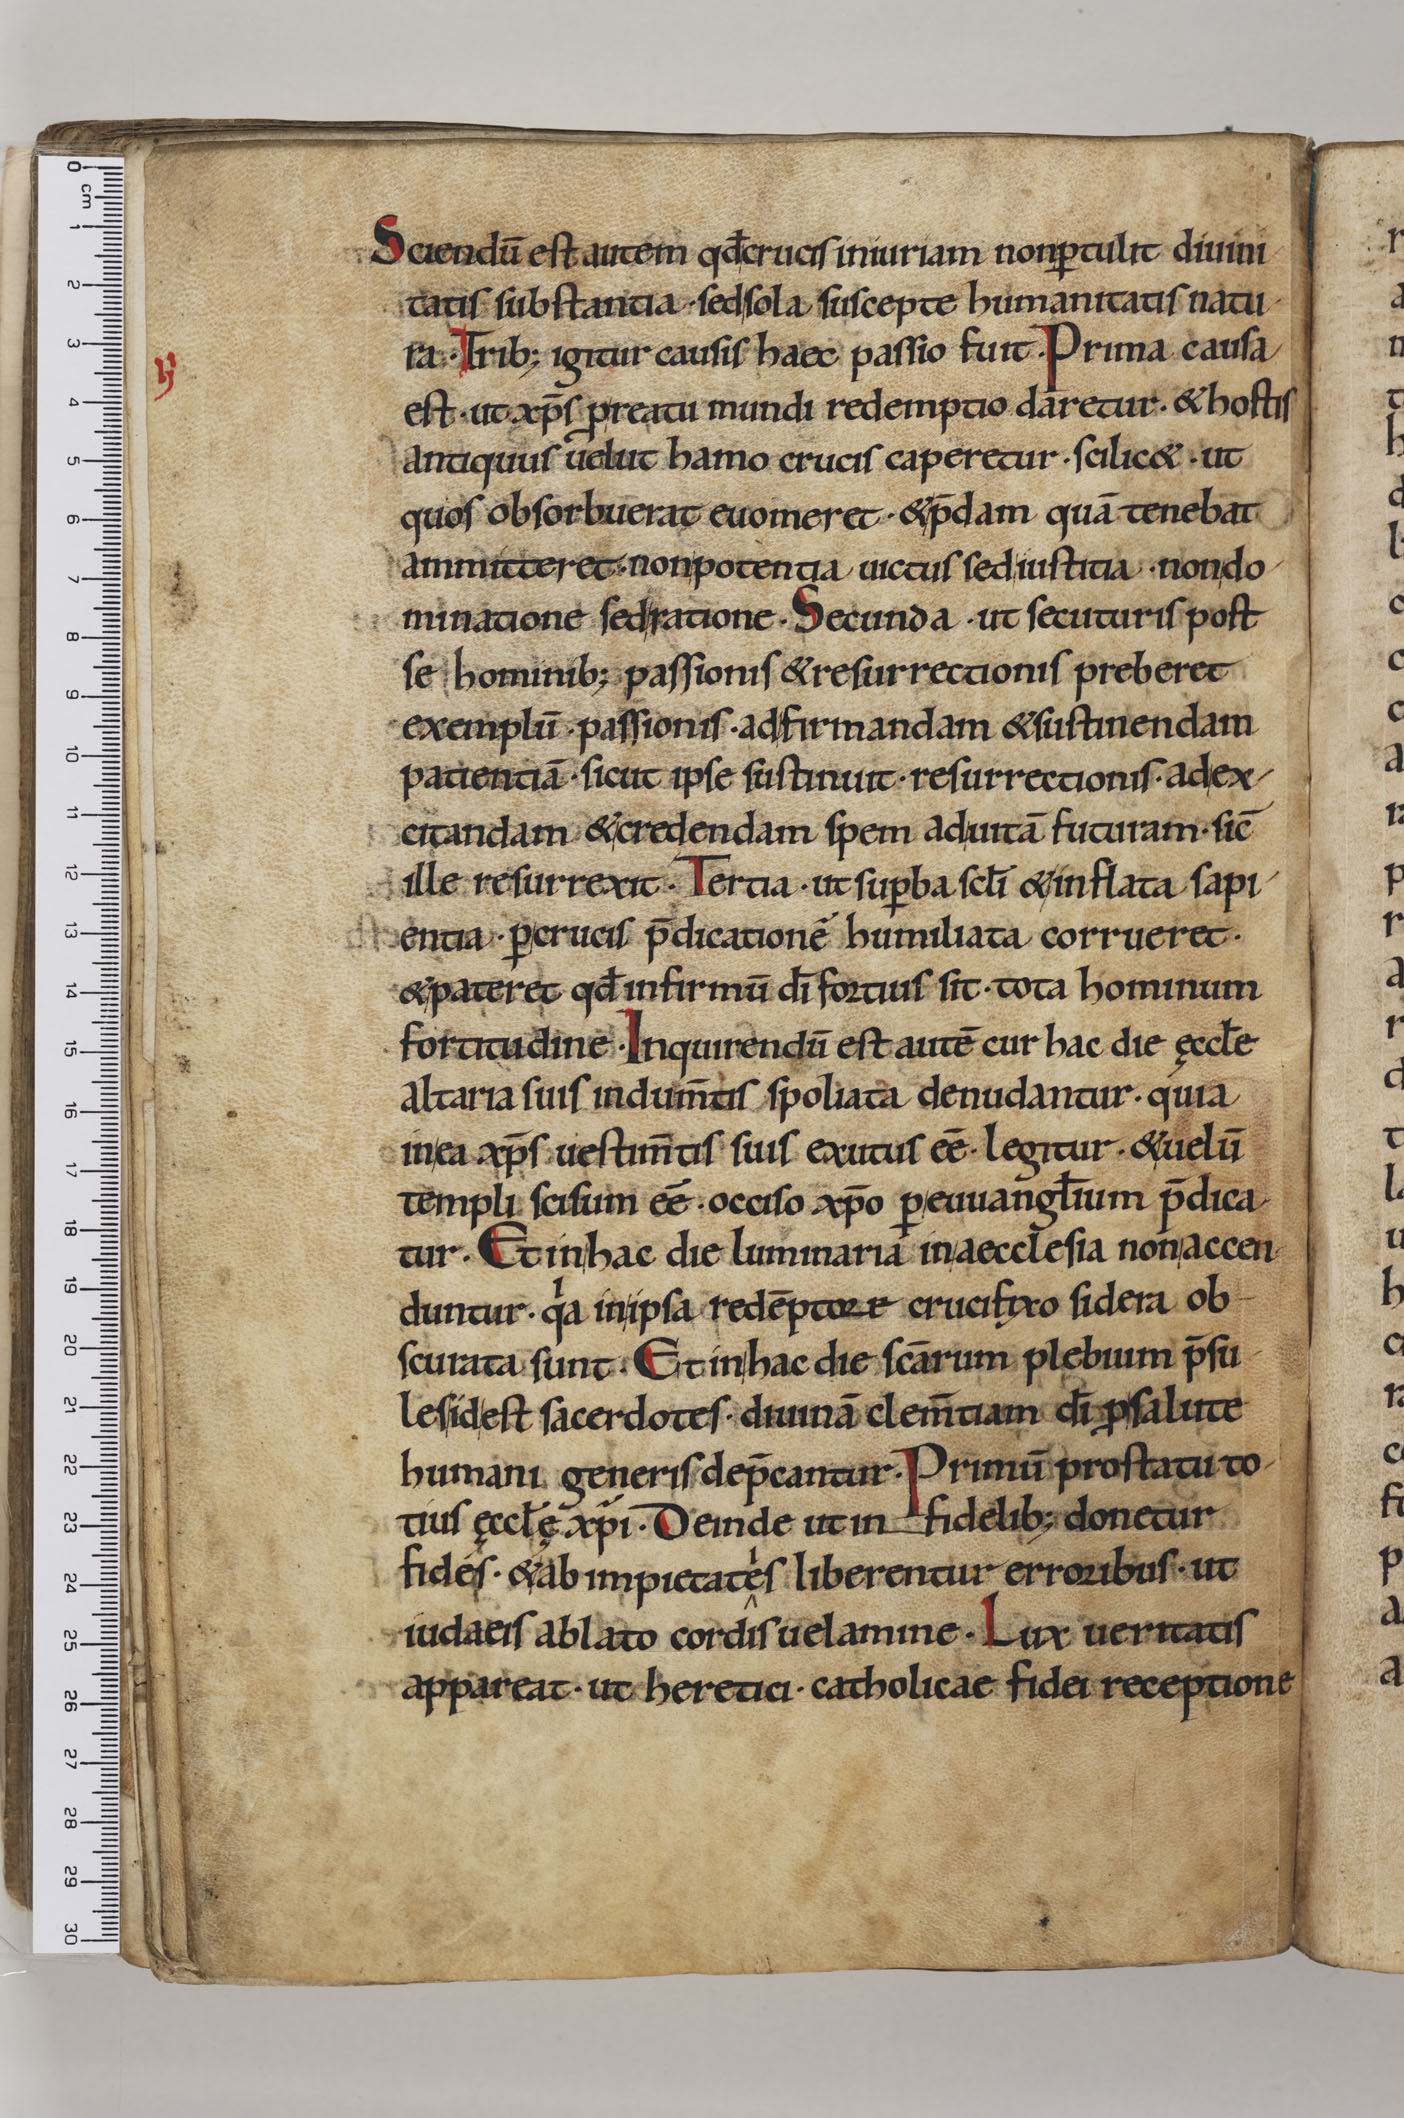 Sciendū est autem qđ crucis iniuriam non ꝑtulit diuini
tatis substantia · sed sola suscepte humanitatis natu
ra · Trib; igitur causis haec passio fuit · Prima causa
est · ut xp̄s p reatu mundi redemptio daretur · & hostis
antiquus uelut hamo crucis caperetur · scilic& · ut
quos obsorbuerat euomeret · & p̄dam quā tenebat
ammitteret · non potentia uictus sed iustitia · non do
minatione sed ratione · Secunda · ut secuturis post
se hominib; passionis & resurrectionis preberet
exemplū · passionis · ad firmandam & sustinendam
patientiā · sicut ipse sustinuit · resurrectionis · ad ex
citandam & credendam spem ad uitā futuram · sic̄
ille resurrexit · Tertia · ut suꝑba scl̄i & inflata sapi
entia · ꝑ crucis p̄dicationē humiliata corrueret ·
& pateret qđ infirmū dī fortius sit · tota hominum
fortitudine · Inquirendū est autē cur hac die ęccl̄e
altaria suis indum̄tis spoliata denudantur · quia
in ea xp̄s uestim̄tis suis exutus eē · legitur · & uelū
templi scisum eē · occiso xp̄o ꝑ euuangl̄ium p̄dica
tur · Et in hac die luminaria in aecclesia non accen
duntur · qͥa in ipsa redēptore crucifixo sidera ob
scurata sunt · Et in hac die sc̄arum plebium p̄su
les id est sacerdotes · diuinā clem̄tiam dī ꝓ salute
humani generis dep̄cantur · Primū pro statu to
tius ęccl̄ę xp̄i · Deinde ut in fidelib; donetur
fides · & ab impietates liberentur erroribus · ut
iudaeis ablato cordis uelamine · Lux ueritatis
appareat · ut heretici · catholicae fidei receptione
0 cm
1
2
3
4
5
6
7
8
9
10
11
12
13
14
15
16
17
18
19
20
21
22
23
24
25
26
27
28
29
30